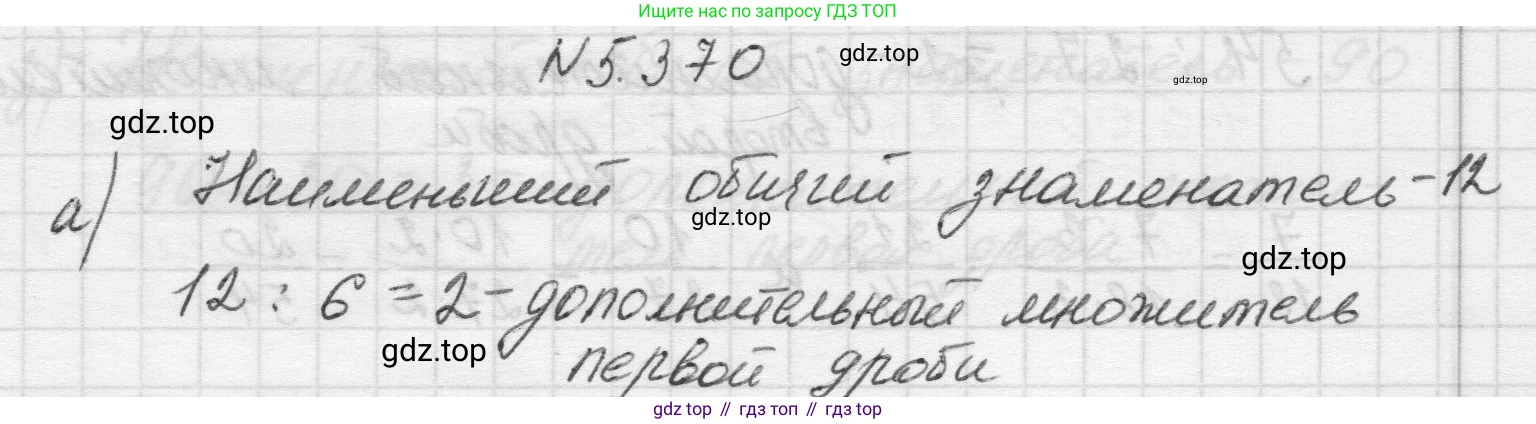 Ищите нас по запросу ГДЗ ТОП
N 5.370
gdz.top
gdz.top
gdz.top
а) Наименьший общий знаменатель - 12
gdz.top
gdz.top
12 : 6 = 2 - дополнительный множитель
gdz.top
первой дроби
gdz top // гдз топ // гдз top